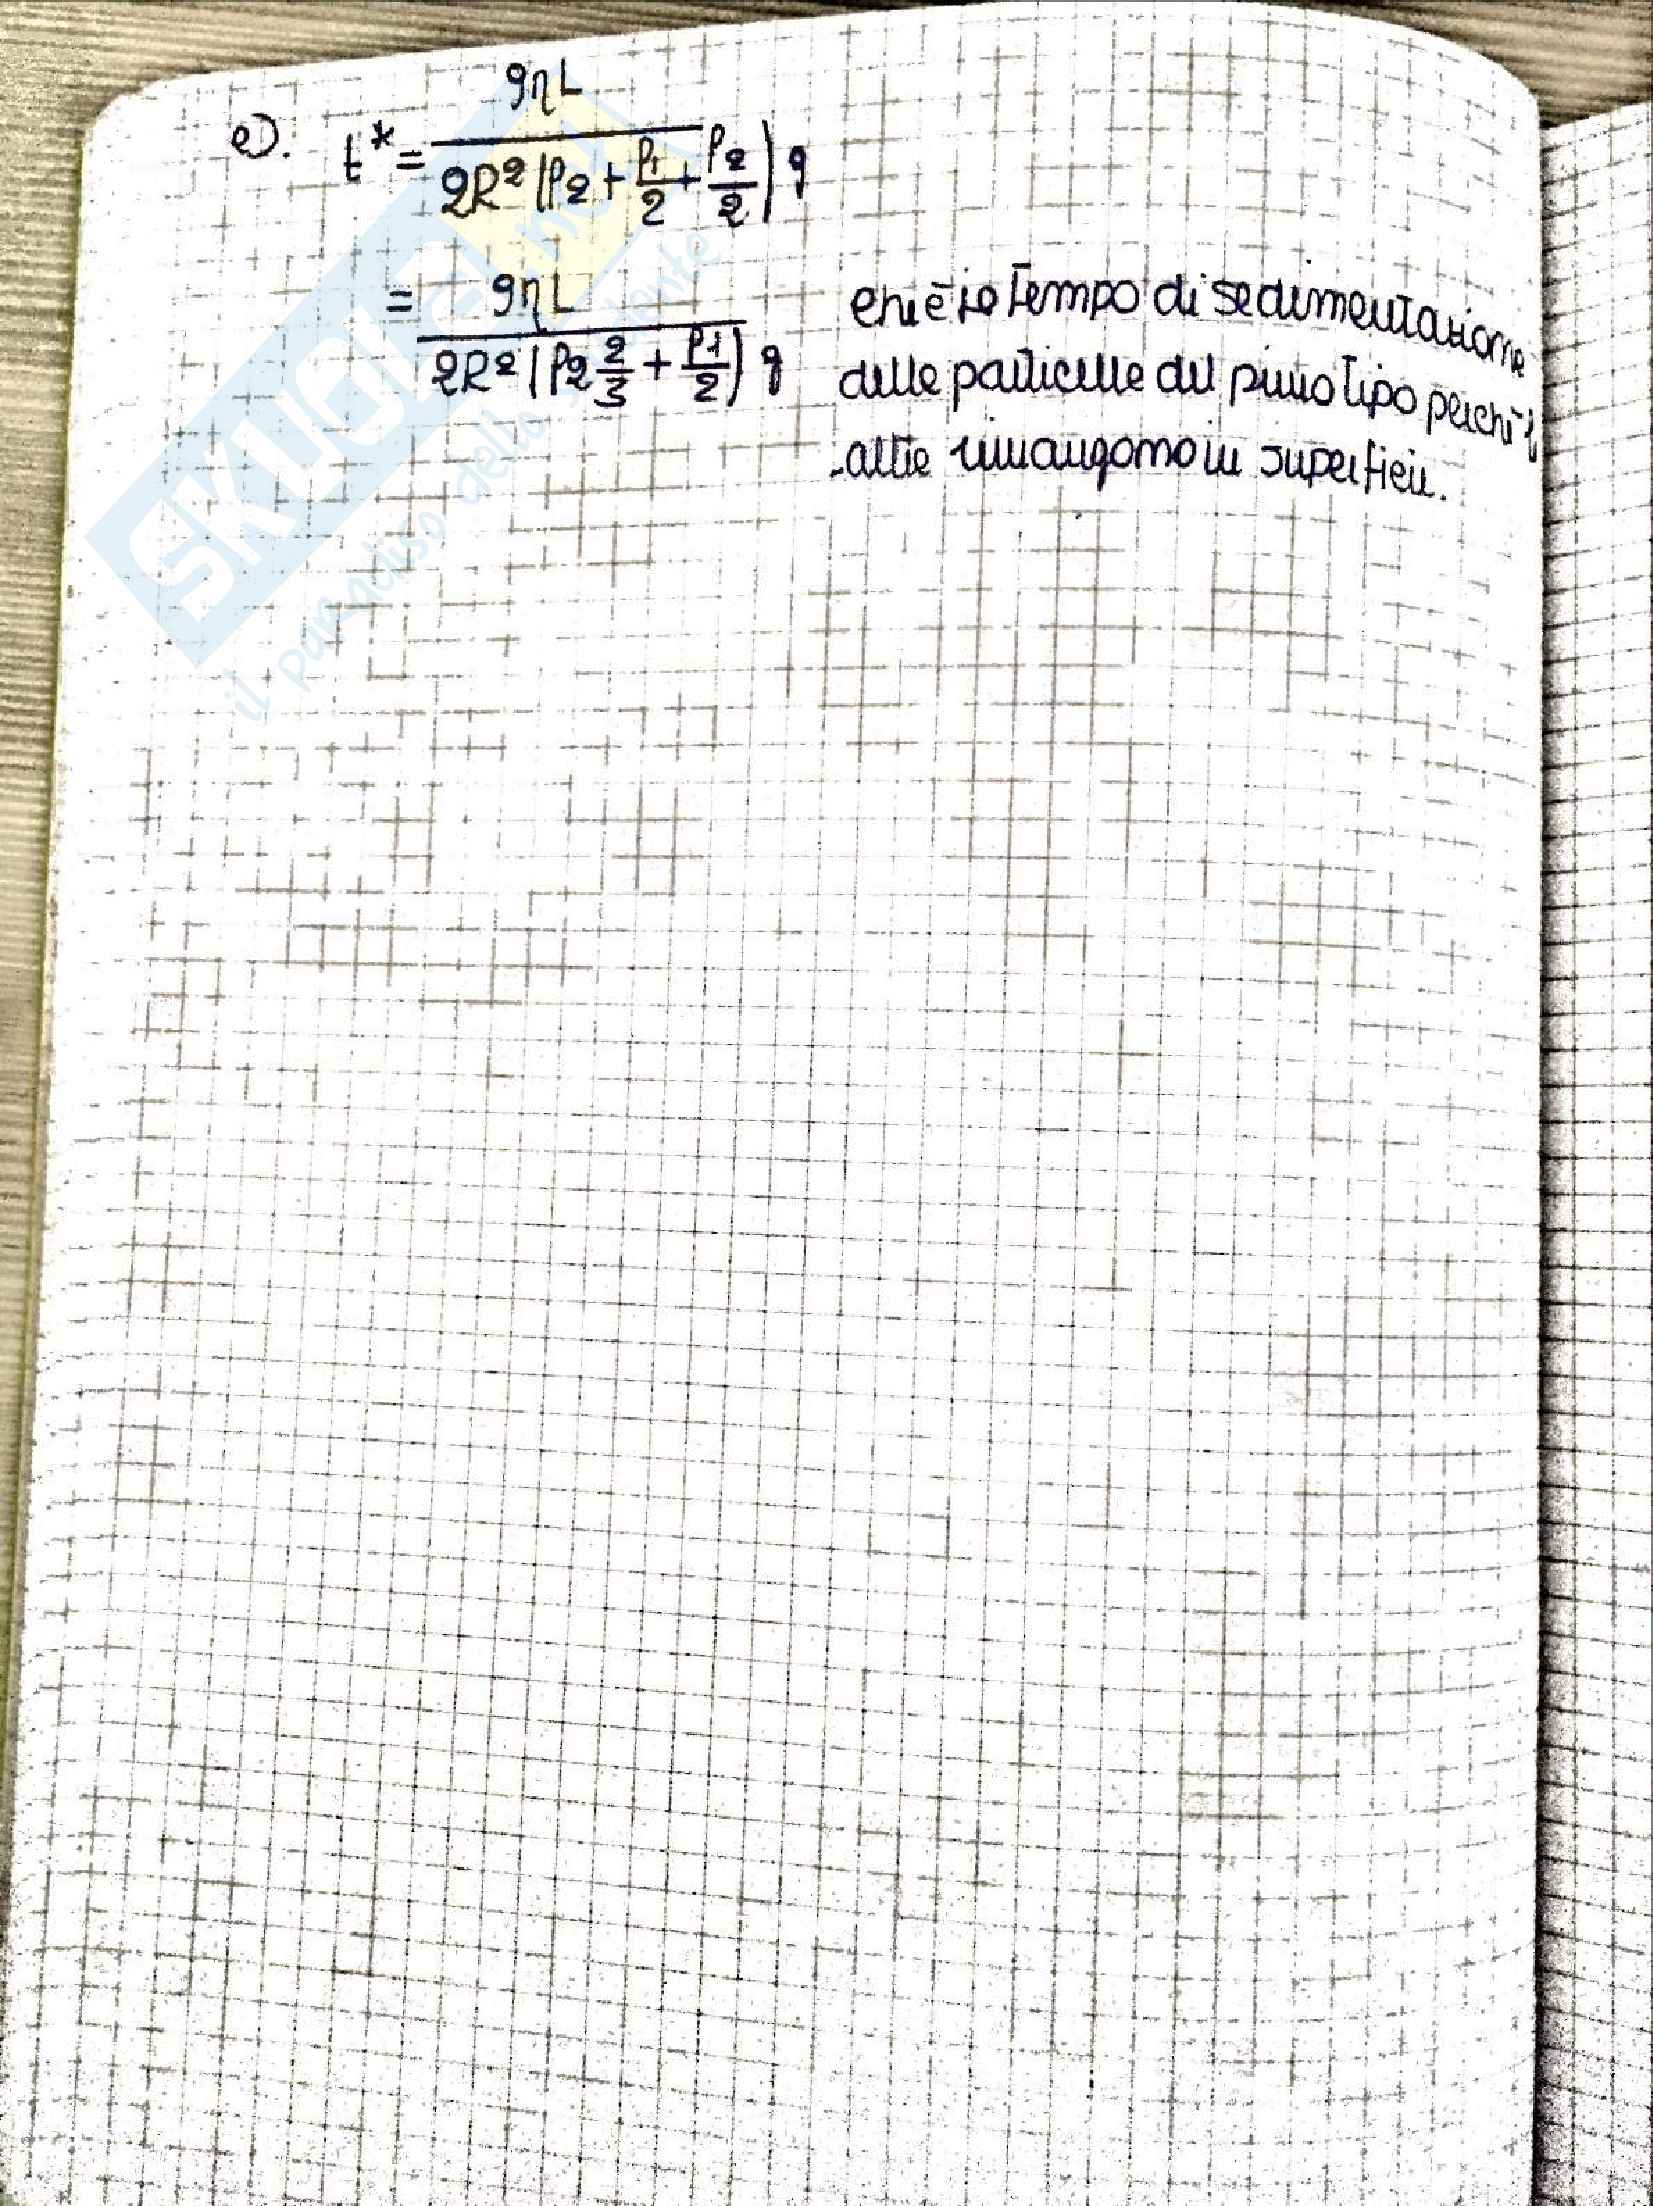 e). t* = 9ηL / 2R² (ρ2 + ρ1/2 + ρ2/2) g
= 9ηL / 2R² (ρ2 2/3 + ρ1/2) g
che è il tempo di sedimentazione
delle particelle del primo tipo perchè
altre rimangono in superficie.
SKUOLA.net
il paradiso dello studente